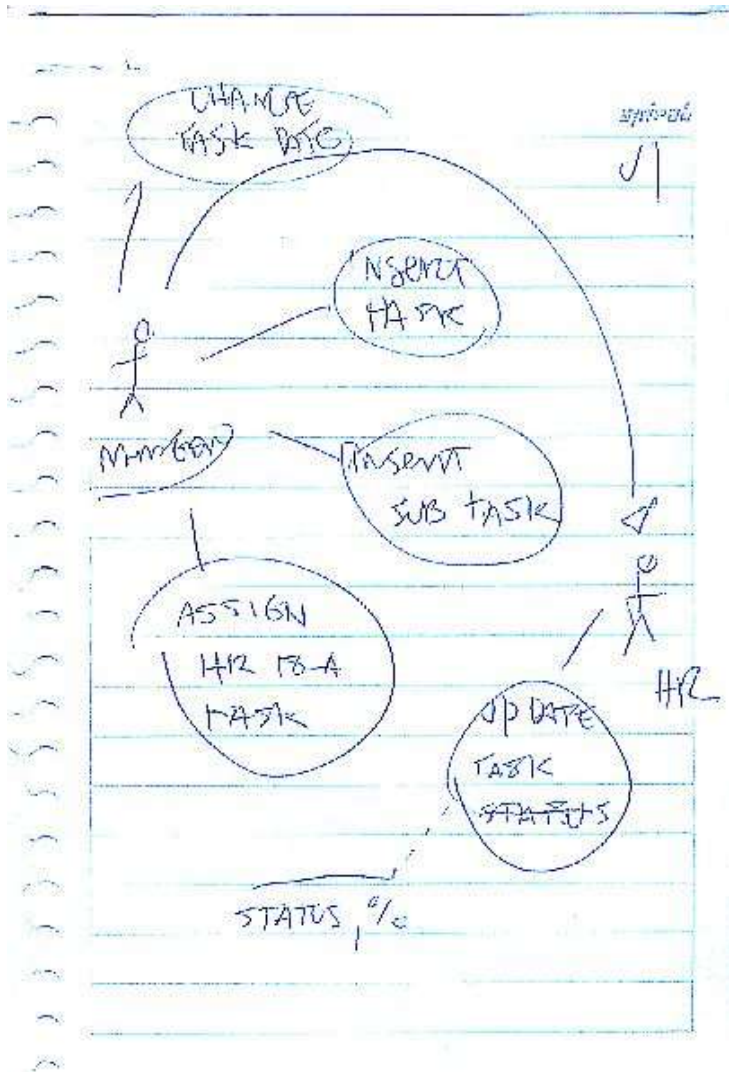 CHANGE
TASK DATE
V1
INSERT
TASK
MANAGER
INSERT
SUB TASK
ASSIGN
HR TO A
TASK
HR
UPDATE
TASK
STATUS
STATUS, %